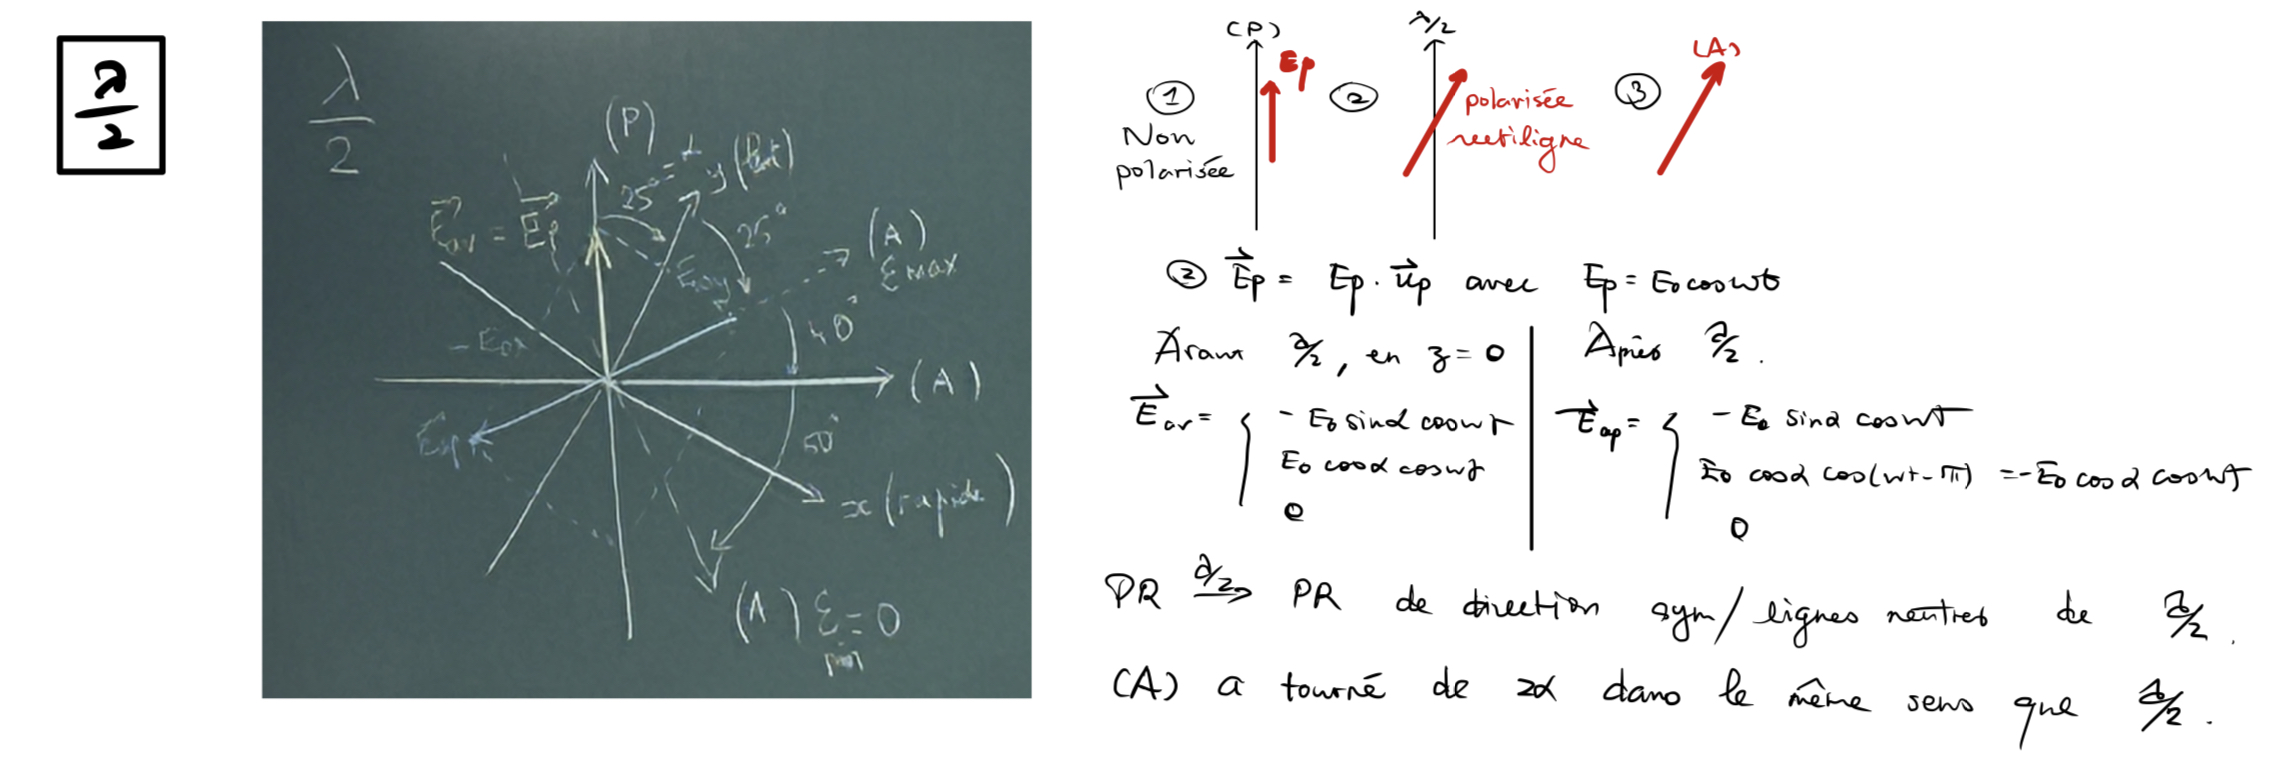 λ/2
λ/2
(P)
25° = α
y (lent)
E⃗av = E⃗p
25°
(A)
Emax
E0y
40°
- E0x
(A)
Eap
50°
x (rapide)
(A) E = 0
min
(P)
Ep
λ/2
(A)
①
Non
polarisée
②
polarisée
rectiligne
③
② E⃗p = Ep . u⃗p avec Ep = E0 cos ωt
Avant λ/2, en z = 0
Après λ/2 .
E⃗av = { - E0 sinα cos ωt
E0 cosα cos ωt
0
E⃗ap = { - E0 sinα cos ωt
E0 cosα cos(ωt - π) = - E0 cosα cos ωt
0
PR λ/2→ PR de direction sym/ lignes neutres de λ/2 .
(A) a tourné de 2α dans le même sens que λ/2 .